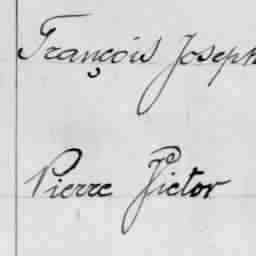 François Joseph
Pierre Victor